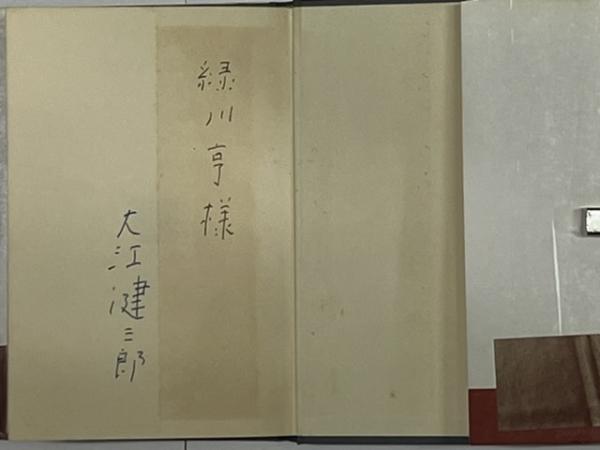 緑川亨様
大江健三郎